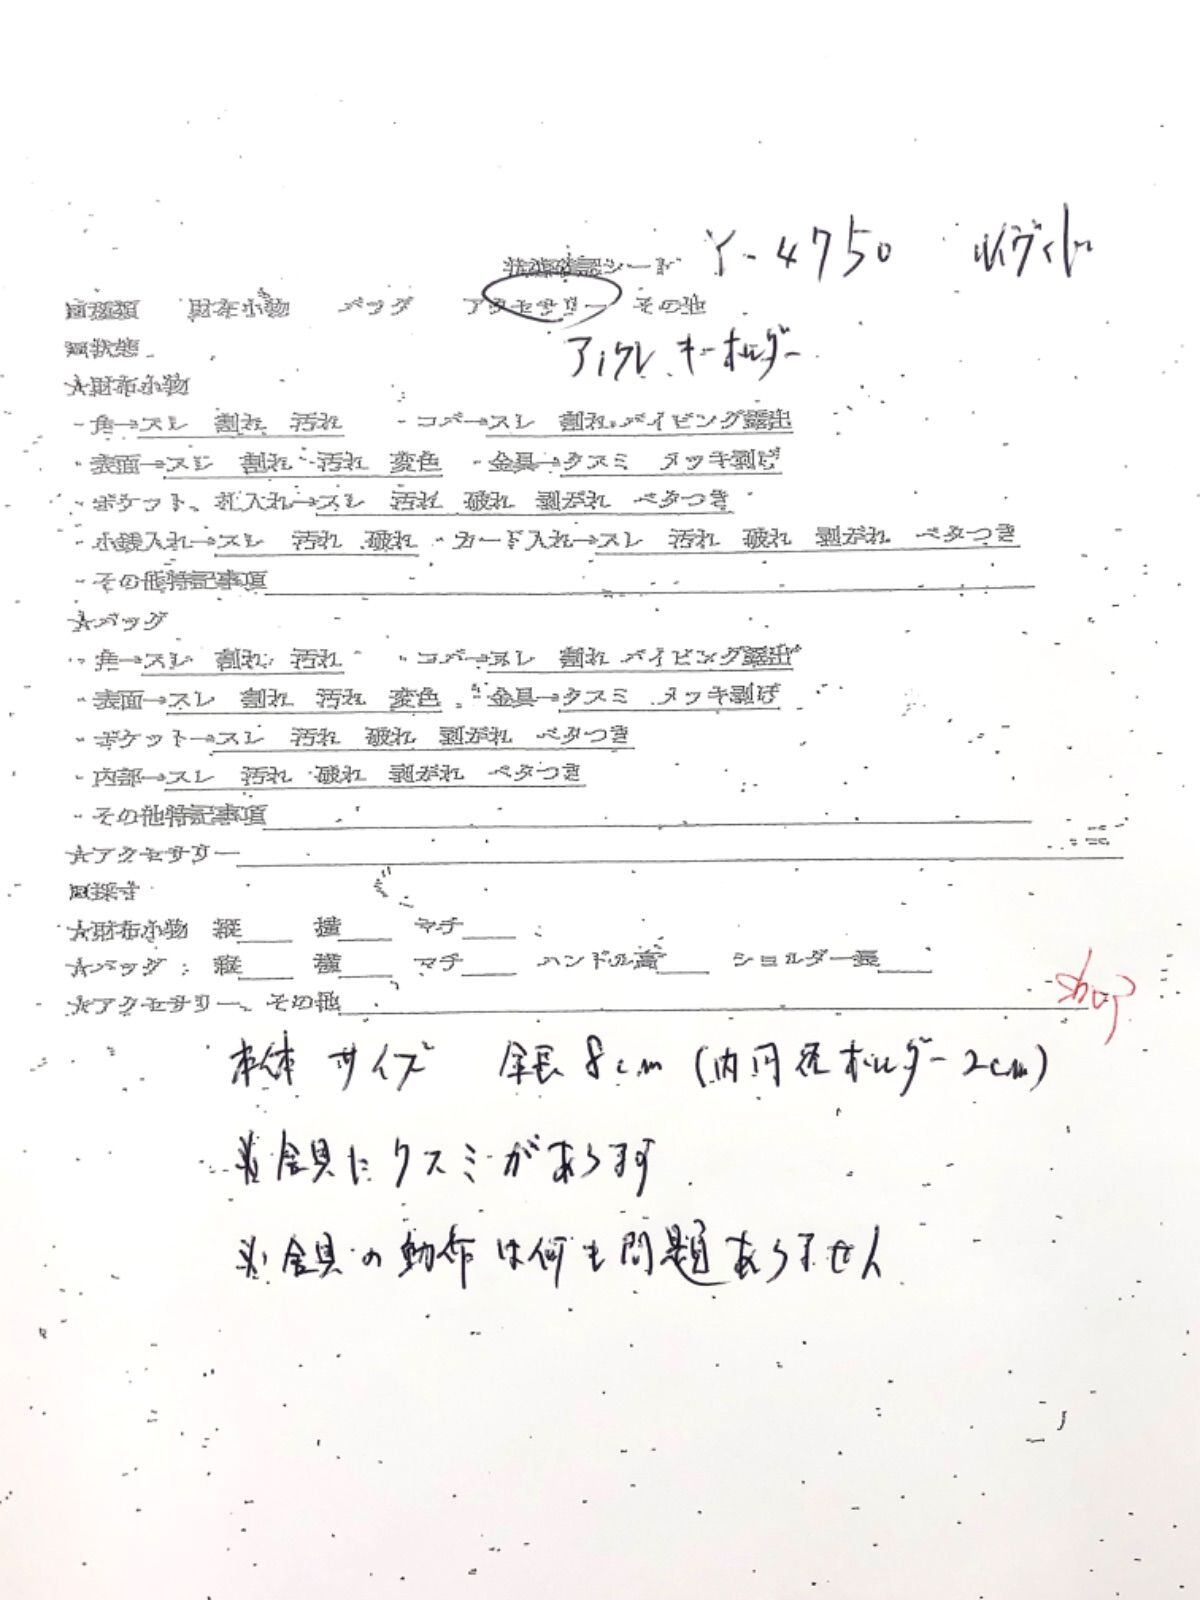 状態確認シート Y-4750 ルイヴィトン
■種類 財布小物 バッグ アクセサリー その他
■状態 アンクレ キーホルダー
★財布小物
・角→スレ 割れ 汚れ ・コバ→スレ 割れ パイピング露出
・表面→スレ 割れ 汚れ 変色 ・金具→クスミ メッキ剥げ
・ポケット、札入れ→スレ 汚れ 破れ 剥がれ ベタつき
・小銭入れ→スレ 汚れ 破れ ・カード入れ→スレ 汚れ 破れ 剥がれ ベタつき
・その他特記事項
★バッグ
・角→スレ 割れ 汚れ ・コバ→スレ 割れ パイピング露出
・表面→スレ 割れ 汚れ 変色 ・金具→クスミ メッキ剥げ
・ポケット→スレ 汚れ 破れ 剥がれ ベタつき
・内部→スレ 汚れ 破れ 剥がれ ベタつき
・その他特記事項
★アクセサリー
■採寸
★財布小物 縦 横 マチ
★バッグ 縦 横 マチ ハンドル高 ショルダー長
★アクセサリー、その他
本体サイズ 全長8cm (内円径ホルダー2cm)
※金具にクスミがあります
※金具の動作は何も問題ありません